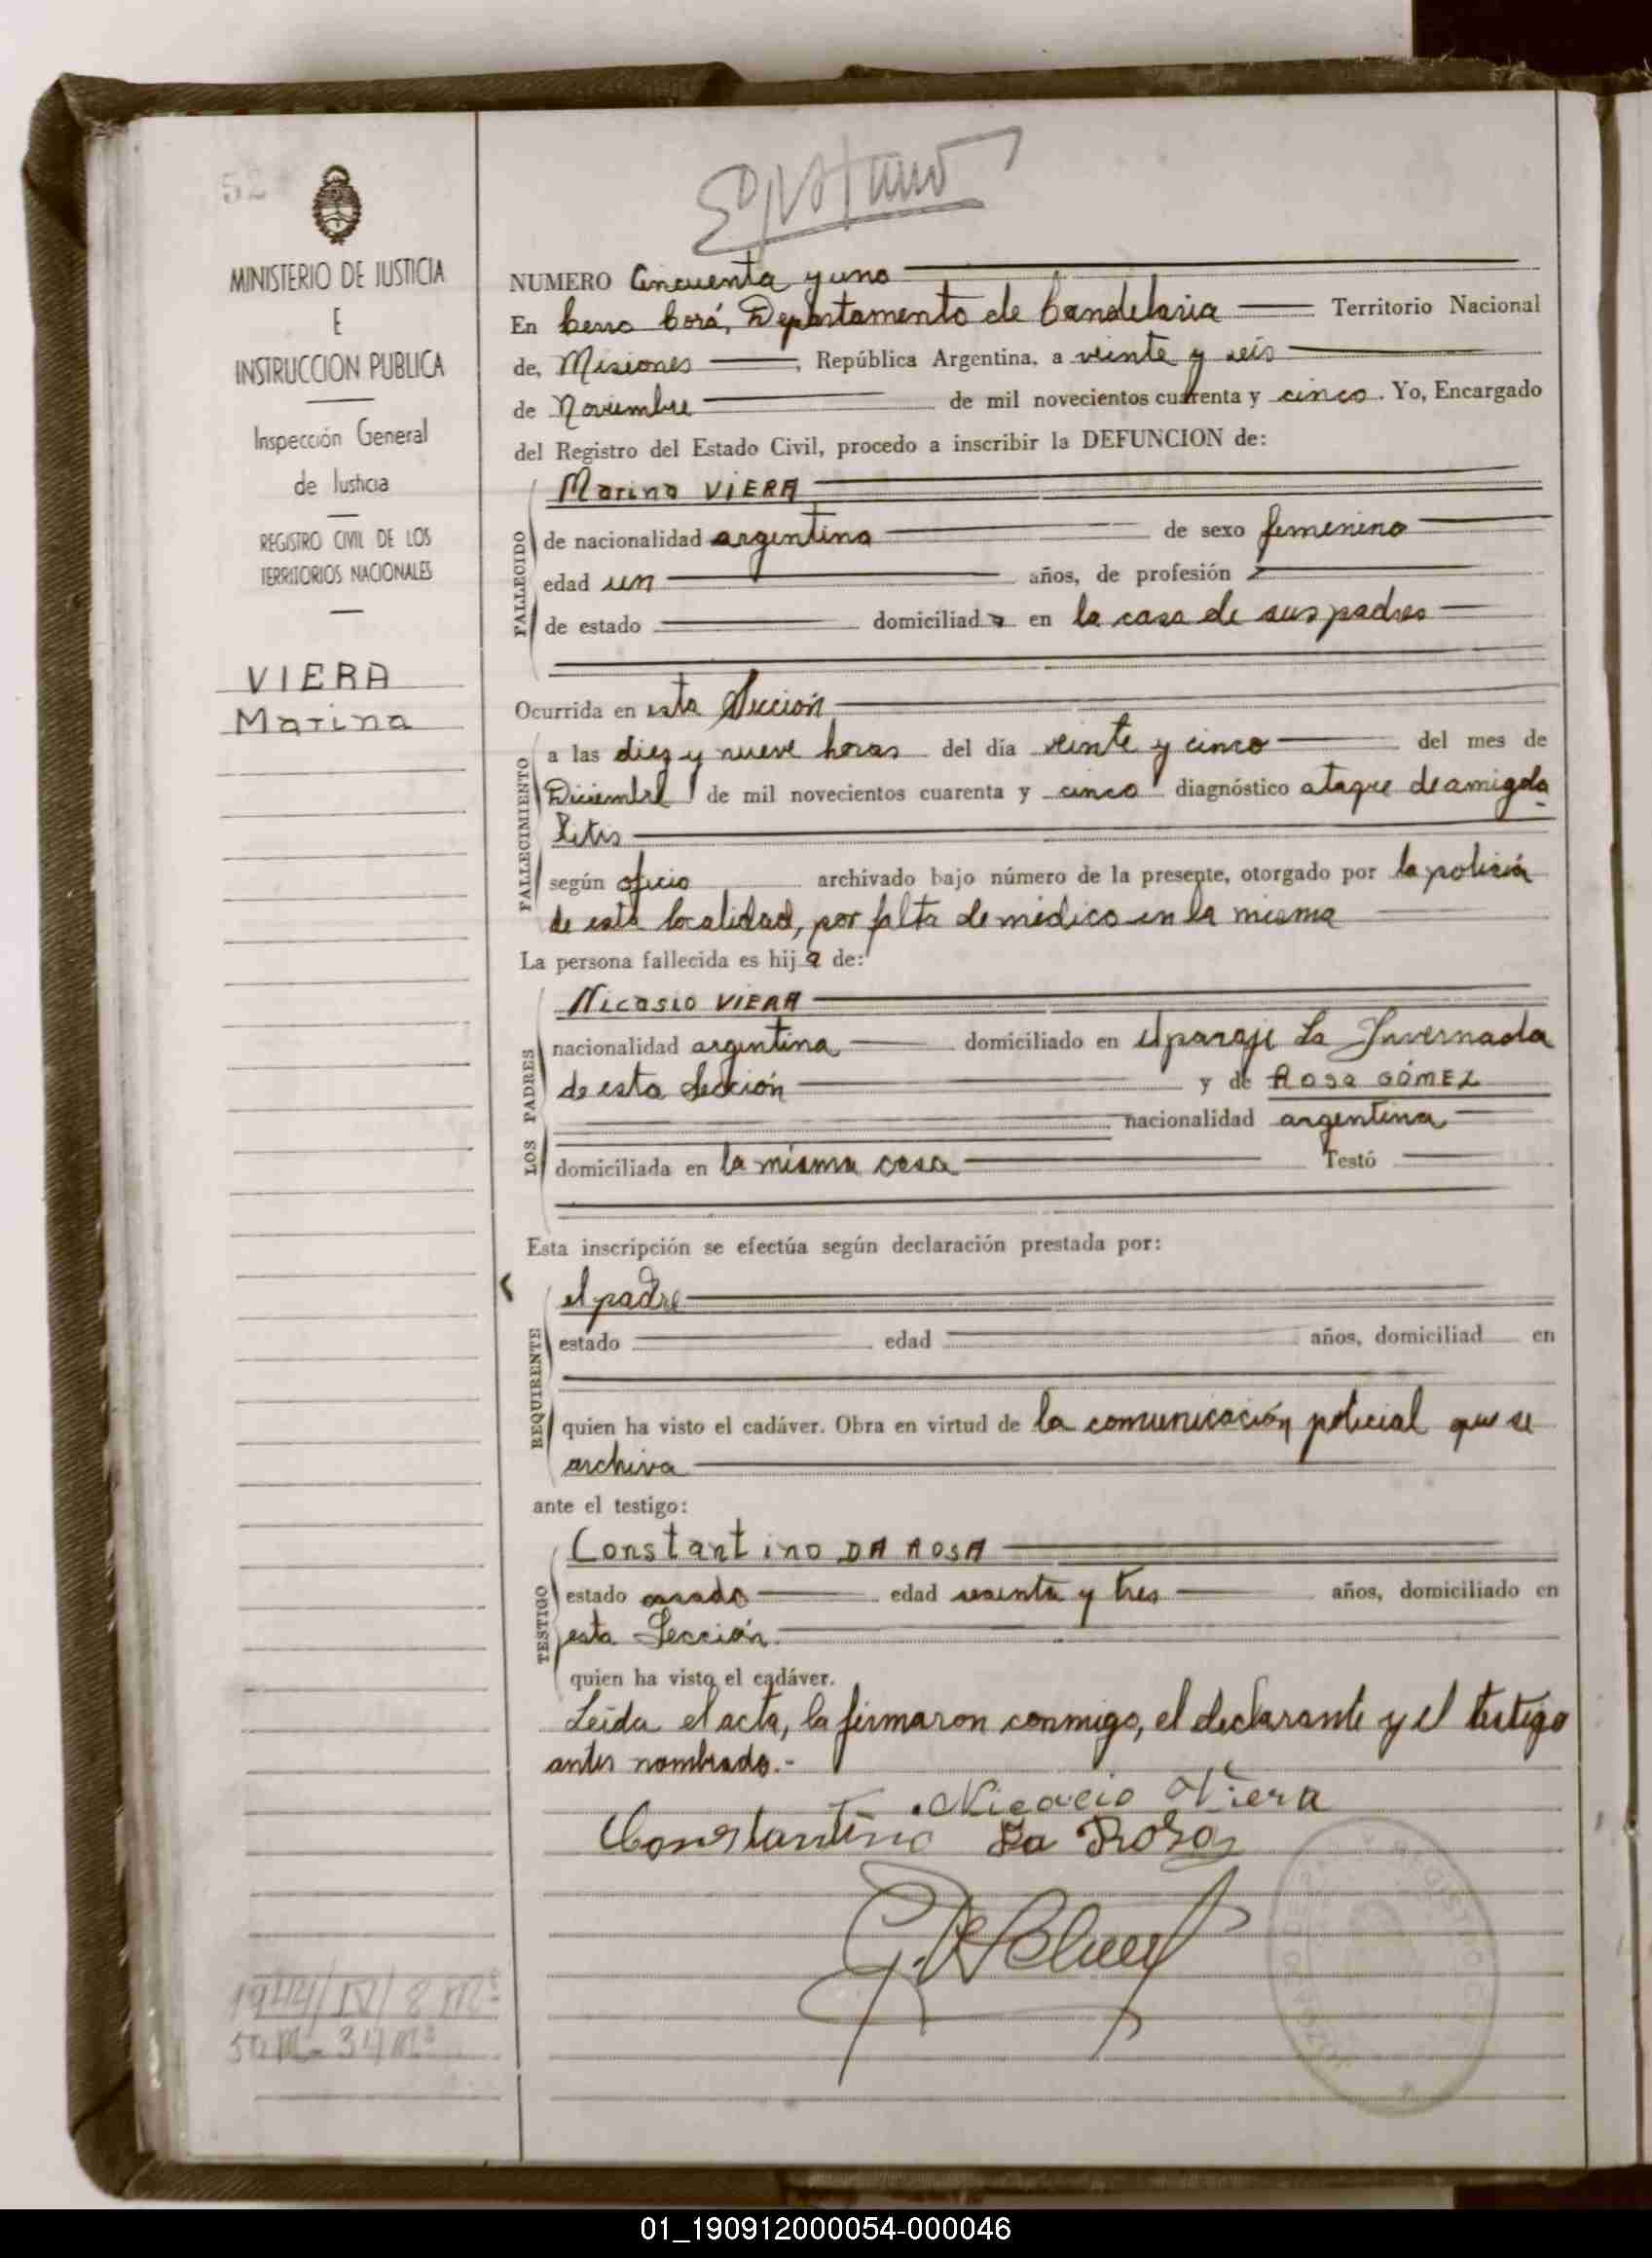 52
MINISTERIO DE JUSTICIA
E
INSTRUCCION PUBLICA
Inspección General
de Justicia
REGISTRO CIVIL DE LOS
TERRITORIOS NACIONALES
VIERA
Marina
NUMERO Cincuenta y uno
En Cerro Corá, Departamento de Candelaria Territorio Nacional
de, Misiones, República Argentina, a veinte y seis
de Noviembre de mil novecientos cuarenta y cinco. Yo, Encargado
del Registro del Estado Civil, procedo a inscribir la DEFUNCION de:
FALLECIDO
Marina VIERA
de nacionalidad argentina de sexo femenino
edad un años, de profesión
de estado domiciliada en la casa de sus padres
Ocurrida en esta Sección
FALLECIMIENTO
a las diez y nueve horas del día veinte y cinco del mes de
Diciembre de mil novecientos cuarenta y cinco diagnóstico ataque de amigda
litis
según oficio archivado bajo número de la presente, otorgado por la policía
de esta localidad, por falta de médico en la misma
La persona fallecida es hija de:
LOS PADRES
Nicasio VIERA
nacionalidad argentina domiciliado en el paraje La Invernada
de esta Sección y de Rosa GÓMEZ
nacionalidad argentina
domiciliada en la misma casa Testó
Esta inscripción se efectúa según declaración prestada por:
REQUIRENTE
el padre
estado edad años, domiciliad en
quien ha visto el cadáver. Obra en virtud de la comunicación policial que se
archiva
ante el testigo:
TESTIGO
Constantino DA ROSA
estado casado edad sesenta y tres años, domiciliado en
esta Sección.
quien ha visto el cadáver.
Leída el acta, la firmaron conmigo, el declarante y el testigo
antes nombrado.-
Nicacio Viera
Constantino Da Rosa
01_190912000054-000046